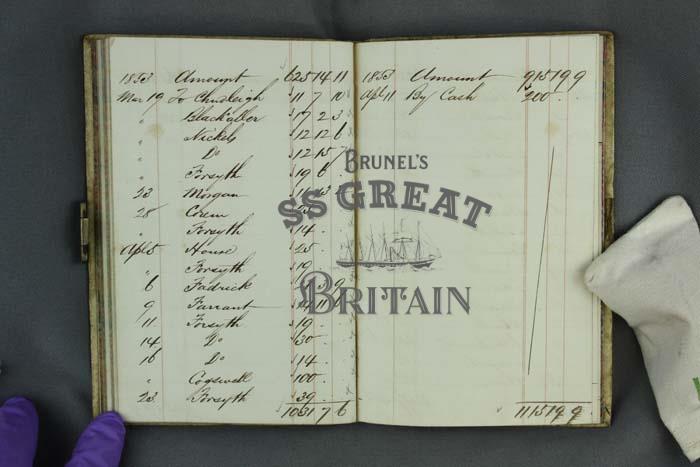 1853 Amount 625 14 11
Mar 19 To Chudleigh 11 7 10
Blackaller 17 2 3
" Nickels 12 12 6
" Do 12 15
" Forsyth 19 6
23 Morgan
28 Corem
" Forsyth 14 .
Apl 5 House 25 .
" Forsyth 19
6 Fadrick
9 Farrant
11 Forsyth 19 .
14 Do 30
16 Do 14 .
" Cogswell 100 .
23 Forsyth 39 .
1031 7 6
1853 Amount 915 19 9
Apl 11 By Cash 200 .
1115 19 9
BRUNEL'S
SS GREAT
BRITAIN